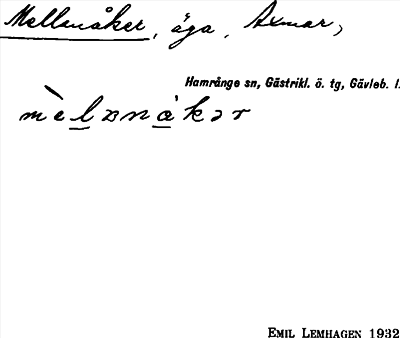 Mellanåker, äga, Axmar,
Hamrånge sn, Gästrikl. ö. tg, Gävleb. l.
mèlanåkər
EMIL LEMHAGEN 1932